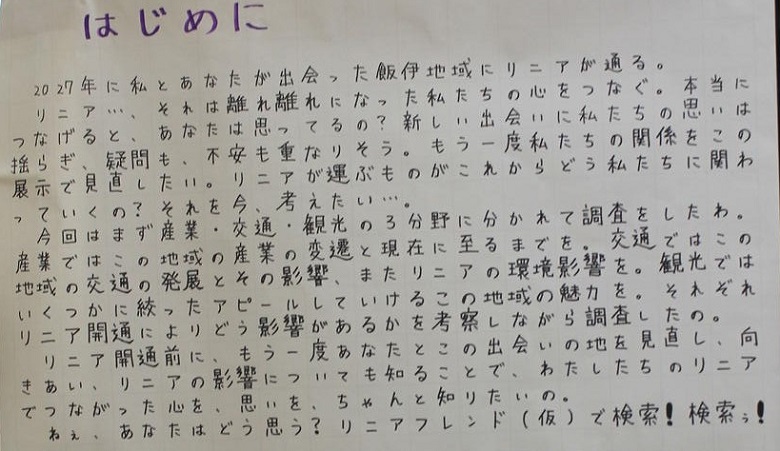 はじめに
2027年に私とあなたが出会った飯伊地域にリニアが通る。
リニア…、それは離れ離れになった私たちの心をつなぐ。本当に
つなげると、あなたは思ってるの?新しい出会いに私たちの思いは
揺らぎ、疑問も、不安も重なりそう。もう一度私たちの関係をこの
展示で見直したい。リニアが運ぶものがこれからどう私たちに関わ
っていくの?それを今、考えたい…。
今回はまず産業・交通・観光の3分野に分かれて調査をしたわ。
産業ではこの地域の産業の変遷と現在に至るまでを。交通ではこの
地域の交通の発展とその影響、またリニアの環境影響を。観光では
いくつかに絞ったアピールしていけるこの地域の魅力を。それぞれ
リニア開通によりどう影響があるかを考察しながら調査したの。
リニア開通前に、もう一度あなたとこの出会いの地を見直し、向
きあい、リニアの影響についても知ることで、わたしたちのリニア
でつながった心を、思いを、ちゃんと知りたいの。
ねぇ、あなたはどう思う?リニアフレンド(仮)で検索!検索ぅ!